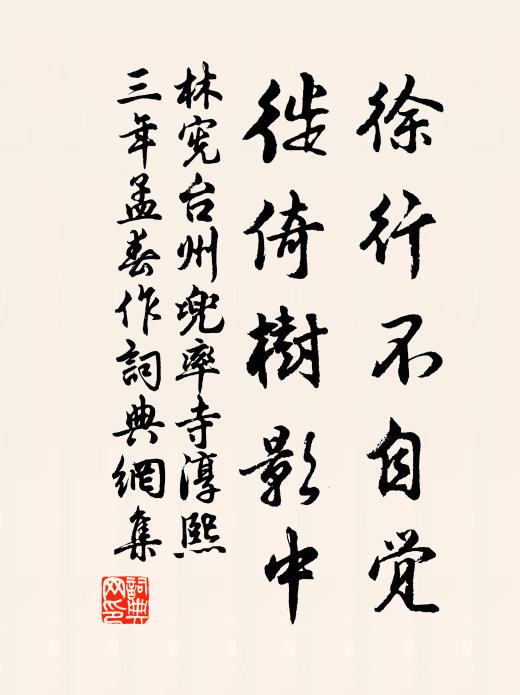 徐行不自觉
徙倚樹影中
林宪台州兜率寺淳熙
三年孟春作詞典網集
詞典网印